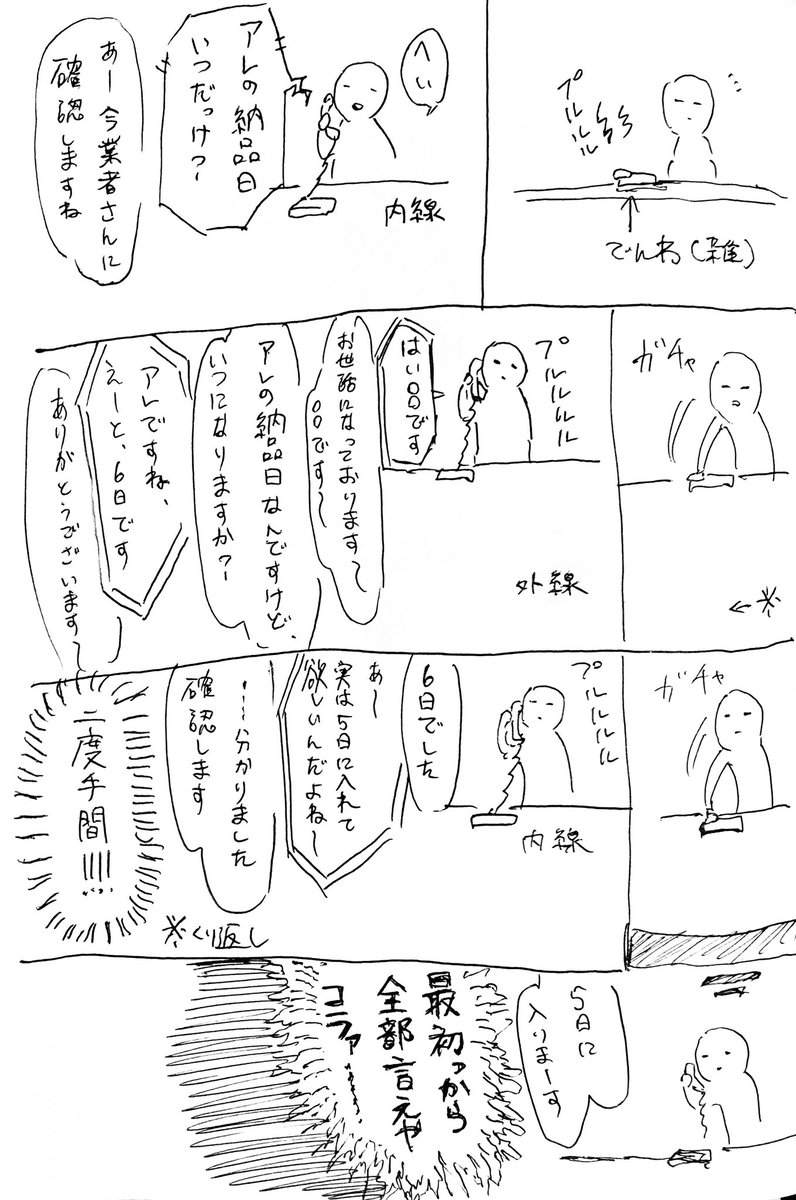 プルルルル
でんわ(雑)
へい
内線
アレの納品日
いつだっけ?
あー今業者さんに
確認しますね
ガチャ
←※
プルルルル
外線
はい〇〇です
お世話になっております〜
〇〇です〜
アレの納品日なんですけど、
いつになりますか?
アレですね、
えーと、6日です
ありがとうございます〜
ガチャ
プルルルル
内線
6日でした
あ〜
実は5日に入れて
欲しいんだよね〜
…分かりました
確認します
※くり返し
二度手間!!!!
5日に
入りまーす
最初っから
全部言えや
コラァ